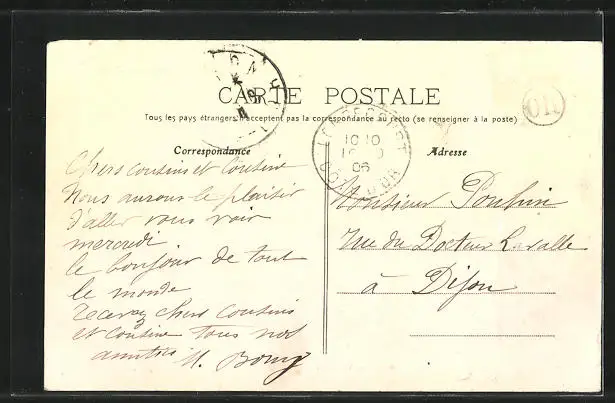 CARTE POSTALE
Tous les pays étrangers n'acceptent pas la correspondance au recto (se renseigner à la poste)
OIO
Correspondance
Adresse
Chers cousins et cousine
Nous aurons le plaisir
d'aller vous voir
mercredi
le bonjour de tout
le monde
recevez chers cousins
et cousine tous nos
amitiés
Monsieur
Rue du Docteur Lavalle
à Dijon